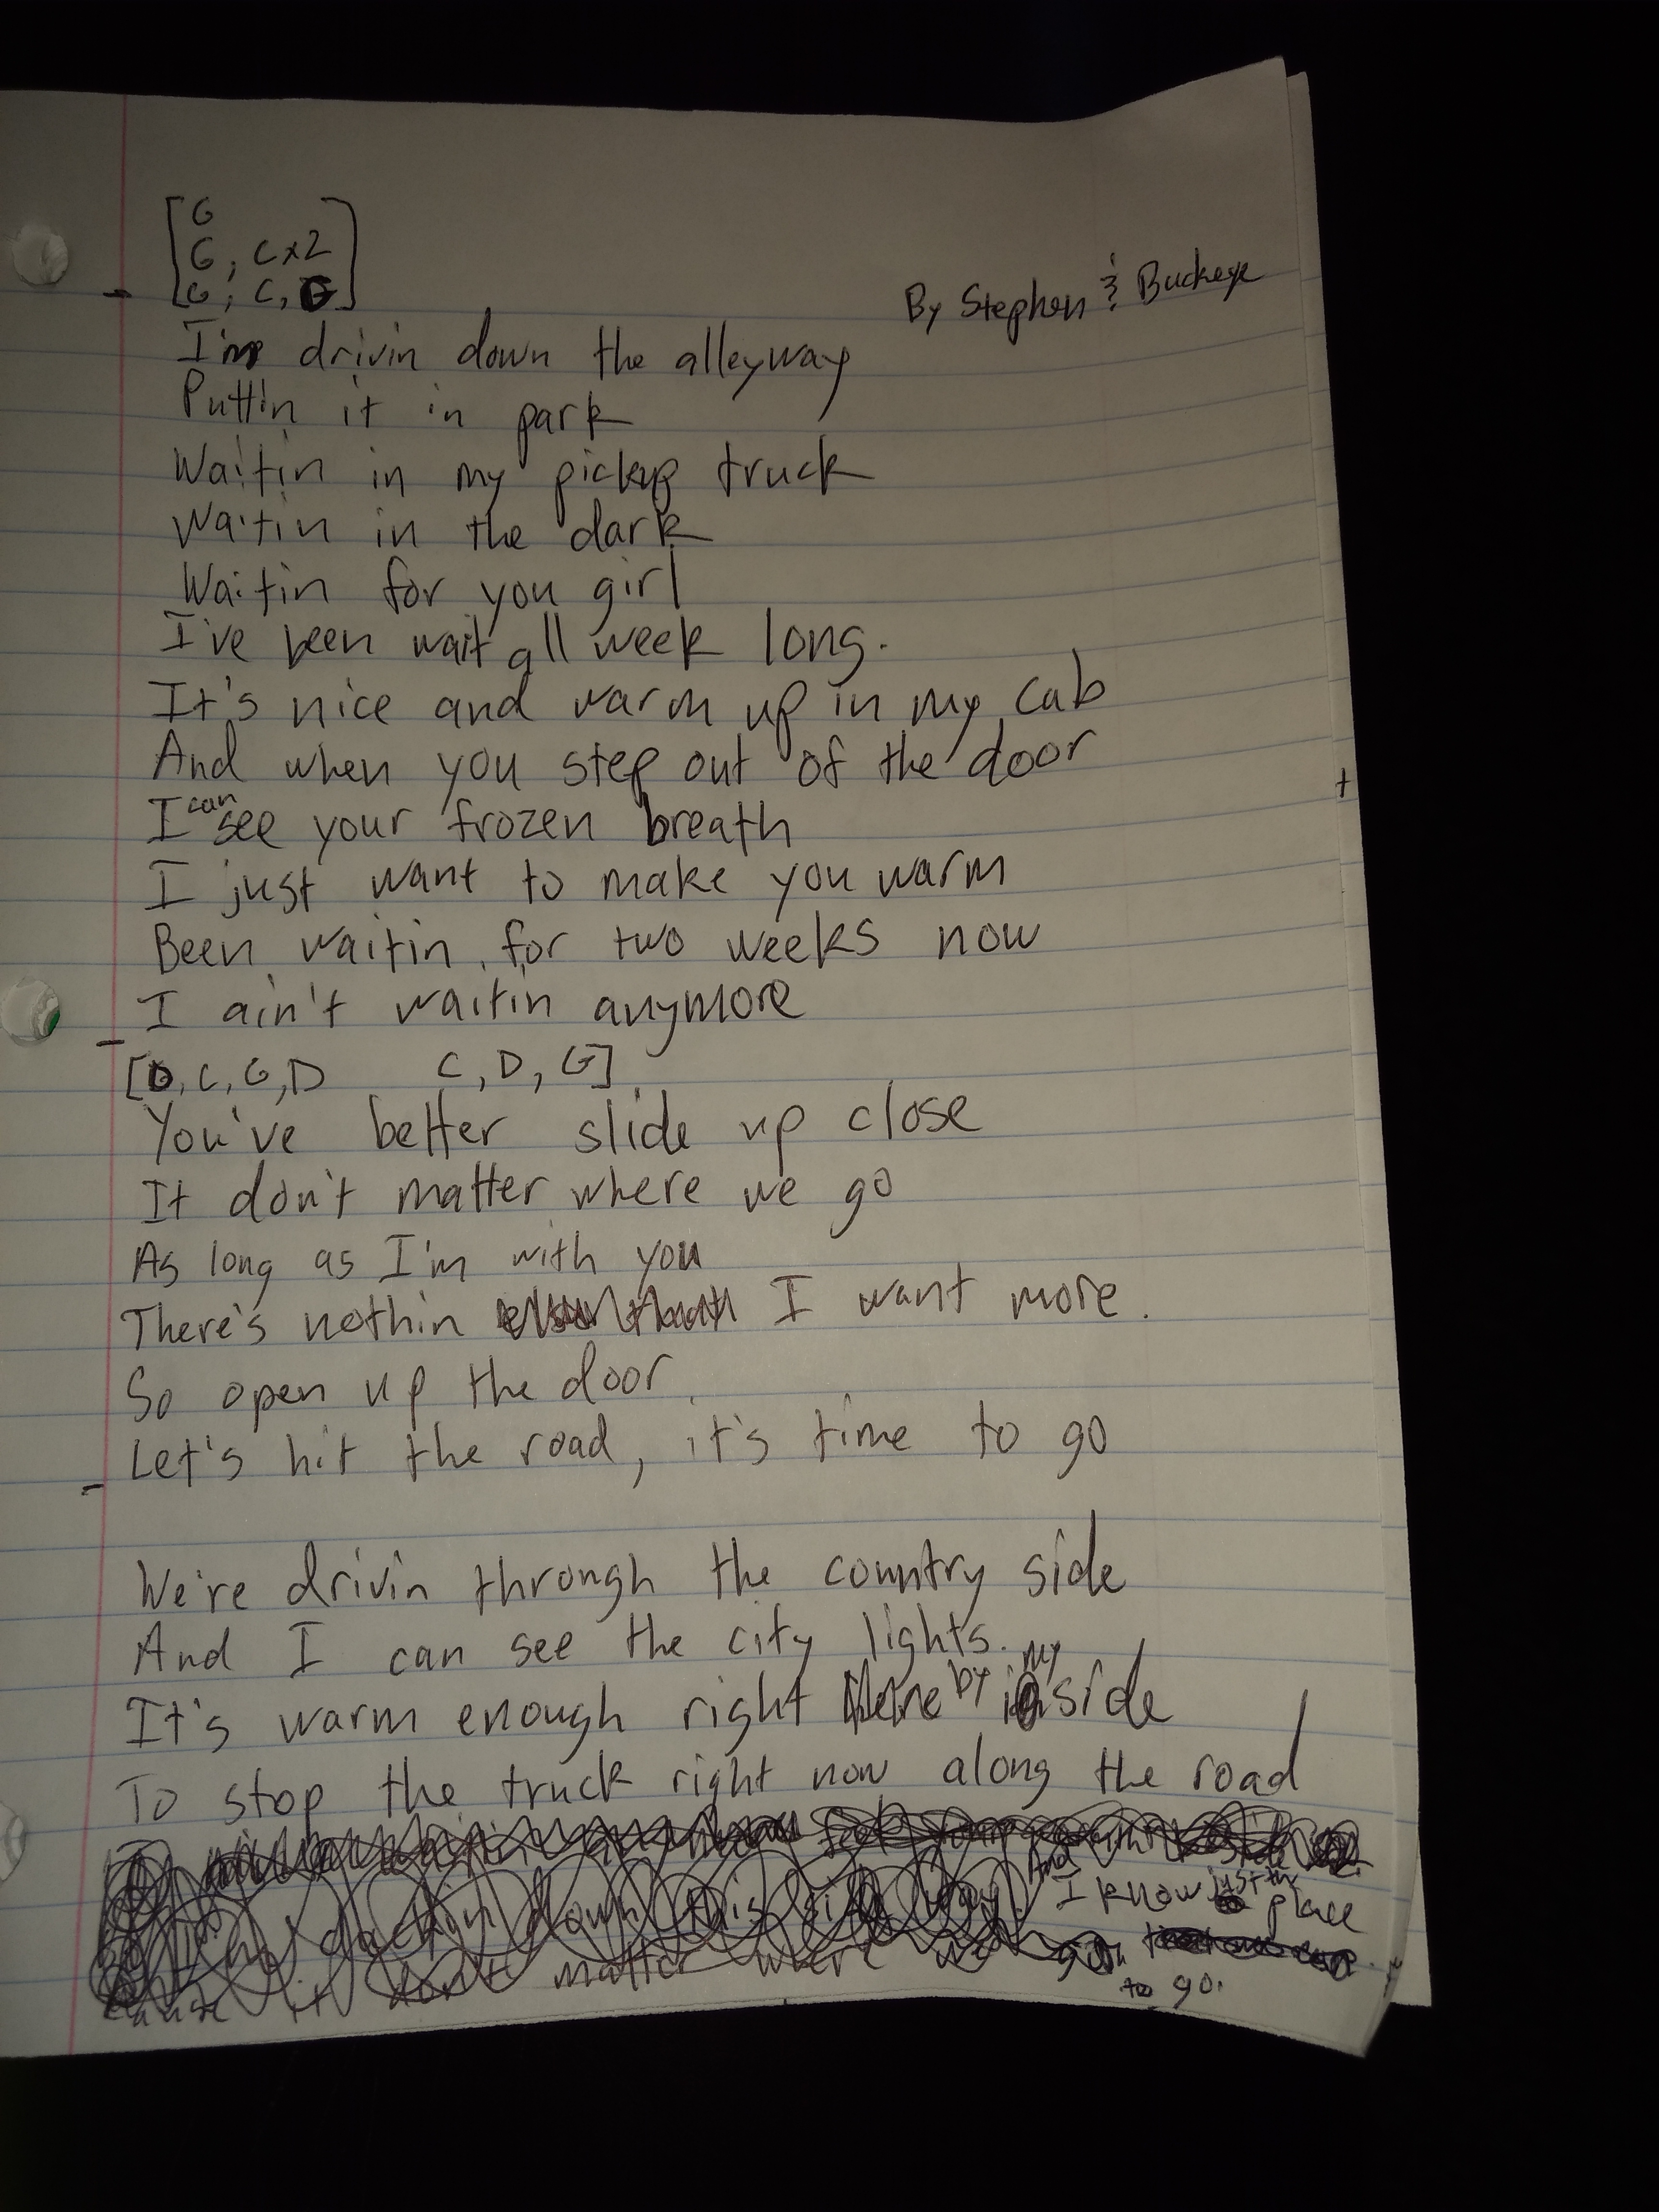 G
G, C x2
G, C, G
By Stephen & Buckeye
I'm drivin down the alleyway
Puttin it in park
Waitin in my pickup truck
Waitin in the dark
Waitin for you girl
I've been wait all week long.
It's nice and warm up in my cab
And when you step out of the door
I can see your frozen breath
I just want to make you warm
Been waitin for two weeks now
I ain't waitin anymore
[D, C, G, D C, D, G]
You've better slide up close
It don't matter where we go
As long as I'm with you
There's nothin I want more.
So open up the door
Let's hit the road, it's time to go
We're drivin through the country side
And I can see the city lights.
It's warm enough right here by my side
To stop the truck right now along the road
And
I know just the place
down this
cause it don't matter where we
to go.